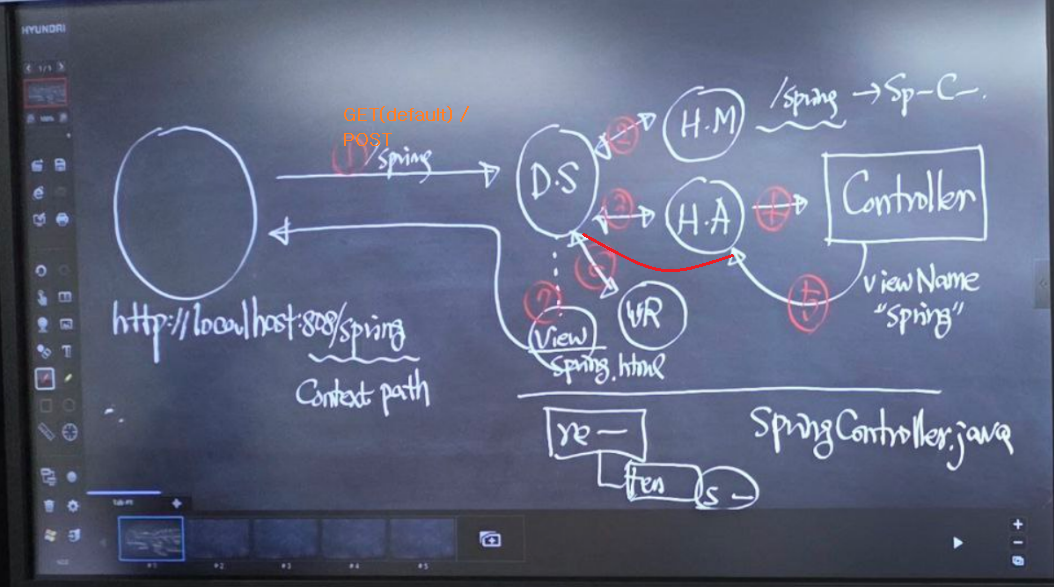 HYUNDAI
1/1
100%
GET(default) /
POST
① /spring
D.S
②
H.M
/spring → Sp-C-.
③
H.A
④
Controller
⑤
viewName
"spring"
⑥
VR
⑦
View
spring.html
http://localhost:808/spring
Context path
re —
tem
s —
SpringController.java
#1
#2
#3
#4
#5